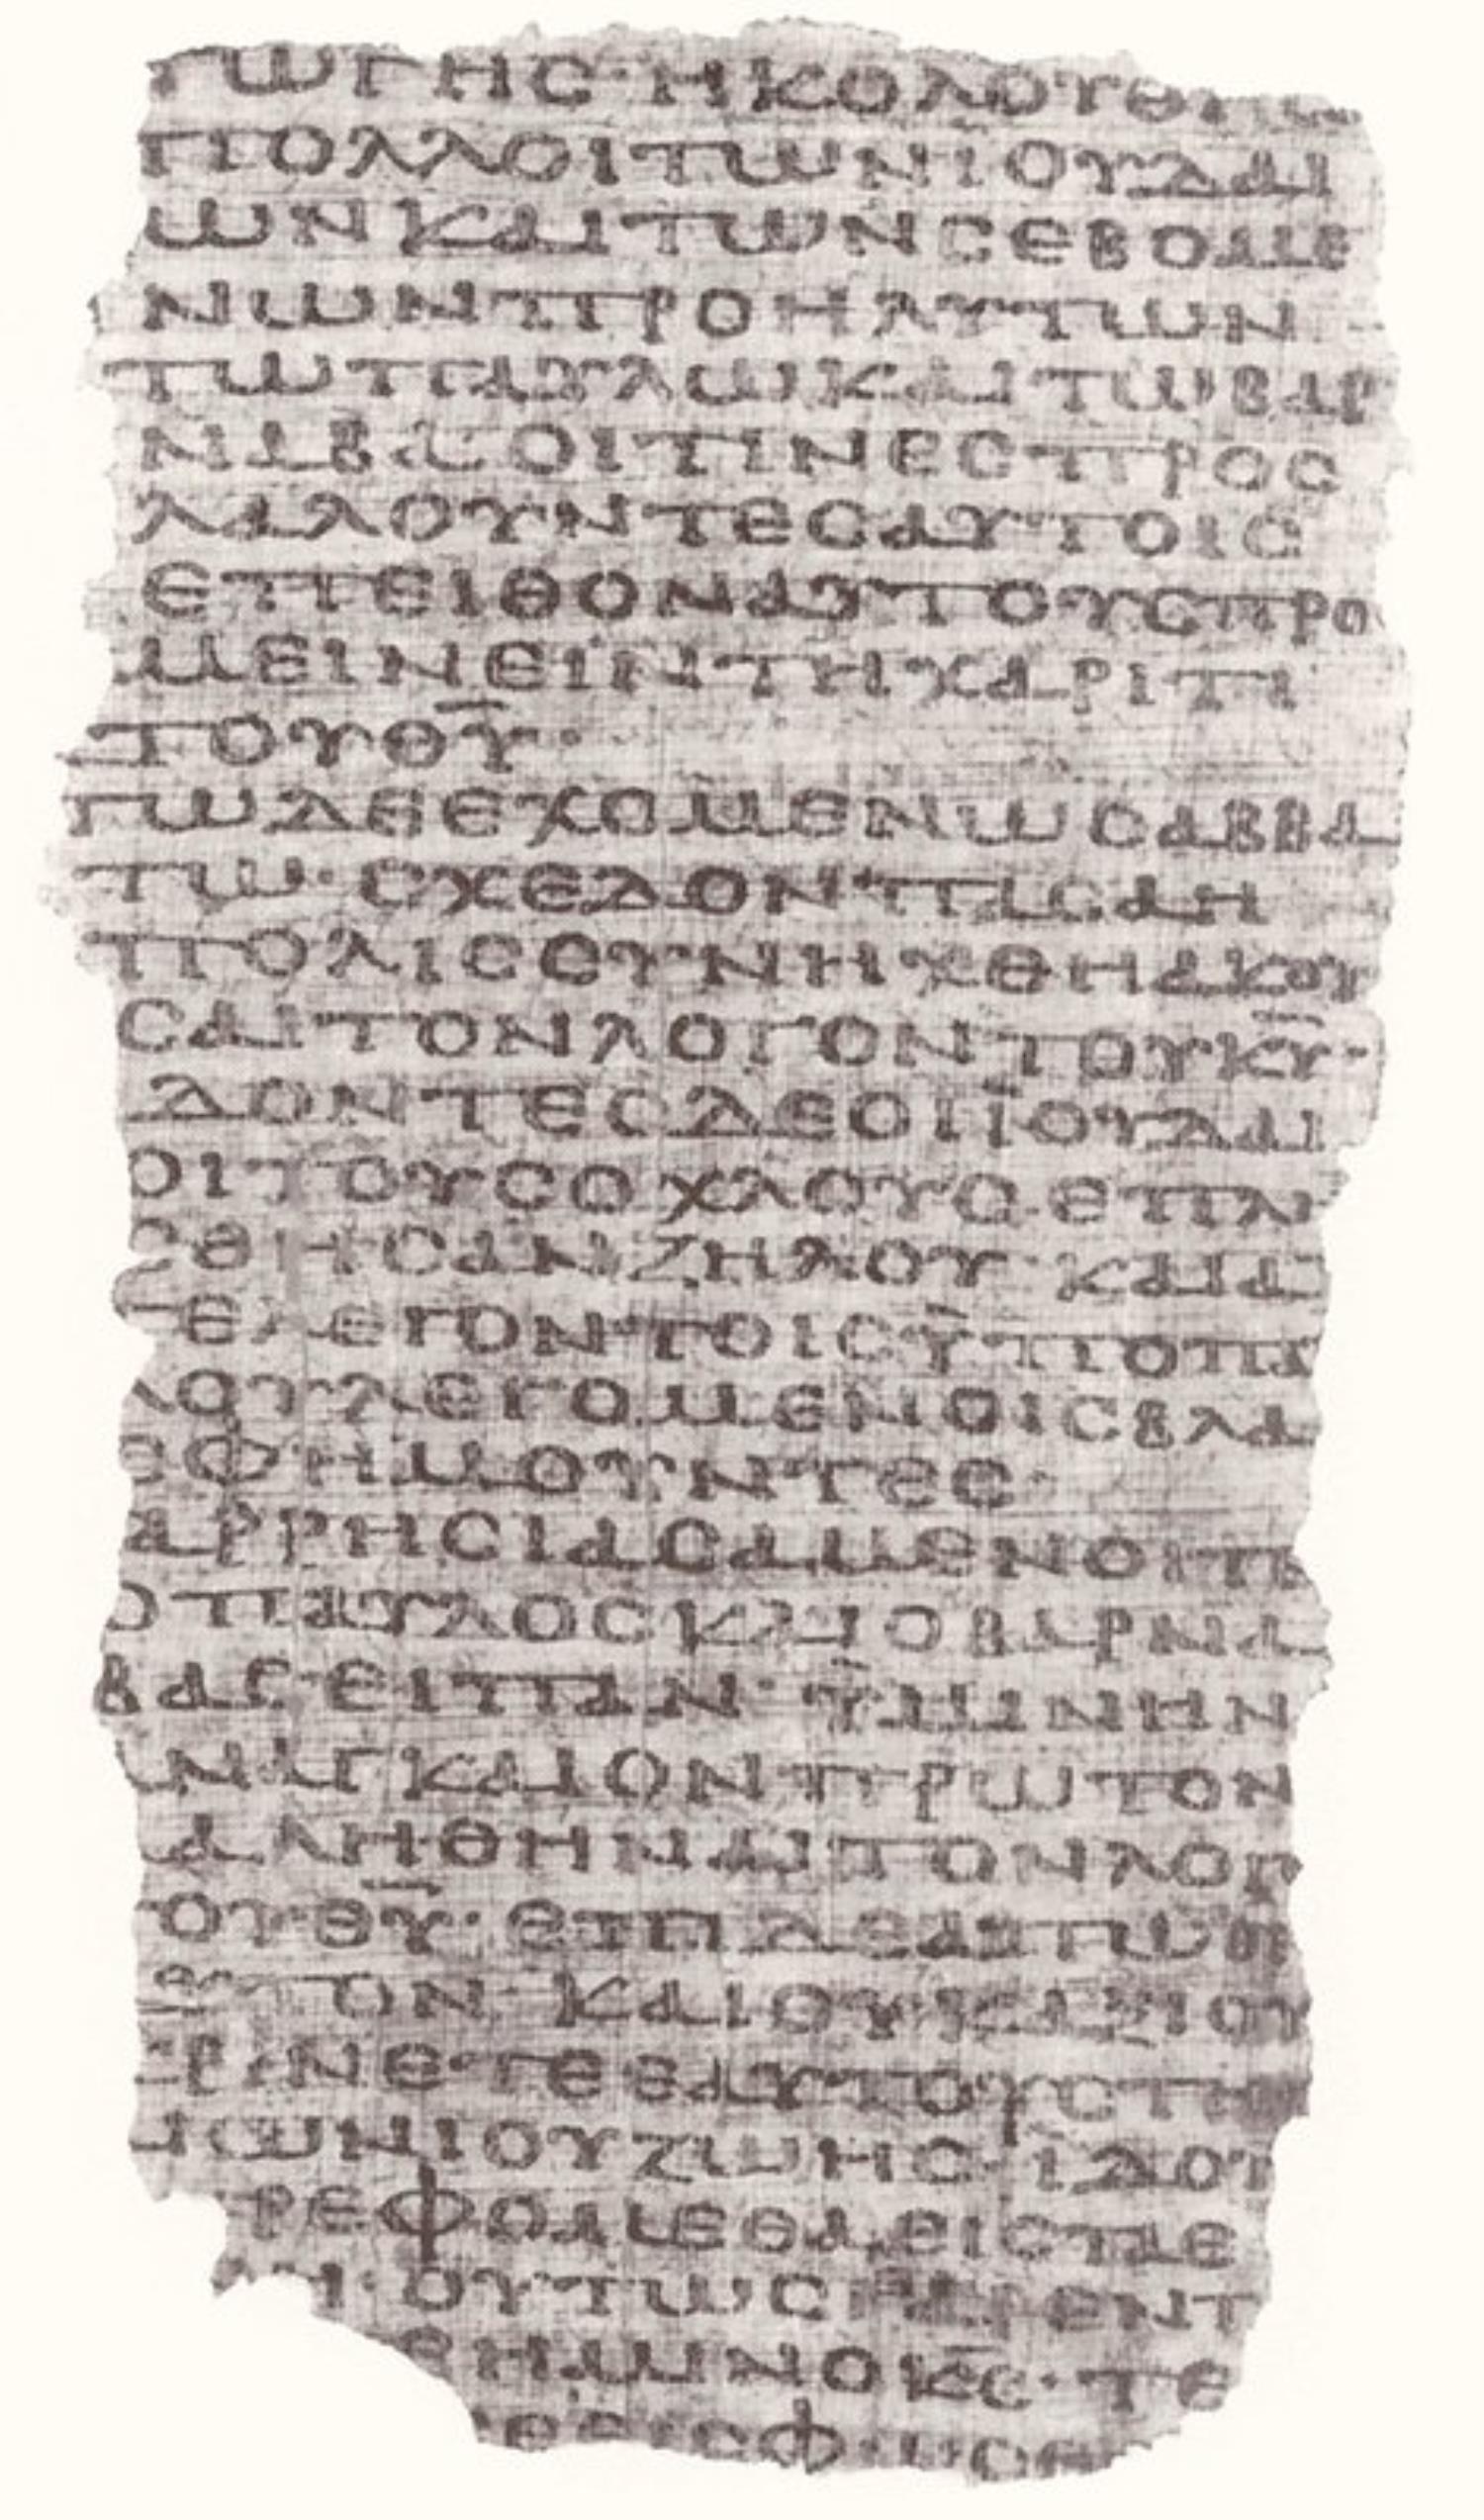 ΓΩΓΗϹ· ΗΚΟΛΟΥΘΗϹ
ΠΟΛΛΟΙΤΩΝΙΟΥΔΑΙ
ΩΝΚΑΙΤΩΝϹΕΒΟΜΕ
ΝΩΝΠΡΟΗΛΥΤΩΝ
ΤΩΠΑΥΛΩΚΑΙΤΩΒΑΡ
ΝΑΒΑ ΟΙΤΙΝΕϹΠΡΟϹ
ΛΑΛΟΥΝΤΕϹΑΥΤΟΙϹ
ΕΠΕΙΘΟΝΑΥΤΟΥϹΠΡΟ
ΜΕΙΝΕΙΝΤΗΧΑΡΙΤΙ
ΤΟΥΘ̅Υ̅·
ΤΩΔΕΕΧΟΜΕΝΩϹΑΒΒΑ
ΤΩ· ϹΧΕΔΟΝΠΑϹΑΗ
ΠΟΛΙϹϹΥΝΗΧΘΗΑΚΟΥ
ϹΑΙΤΟΝΛΟΓΟΝΤΟΥΚ̅Υ̅·
ΔΟΝΤΕϹΔΕΟΙΪΟΥΔΑΙ
ΟΙΤΟΥϹΟΧΛΟΥϹΕΠΛΗ
ϹΘΗϹΑΝΖΗΛΟΥ· ΚΑΙΑ
ΤΕΛΕΓΟΝΤΟΙϹΫΠΟΠΑ
ΛΟΥΛΕΓΟΜΕΝΟΙϹΒΛΑ
ϹΦΗΜΟΥΝΤΕϹ·
ΑΡΡΗϹΙΑϹΑΜΕΝΟΙΤΕ
ΟΠΑΥΛΟϹΚΑΙΟΒΑΡΝΑ
ΒΑϹΕΙΠΑΝ· ΫΜΙΝΗΝ
ΑΝΑΓΚΑΙΟΝΠΡΩΤΟΝ
ΛΑΛΗΘΗΝΑΙΤΟΝΛΟΓ
ΟΥΘ̅Υ̅· ΕΠΙΔΕΑΠΩΘΕ
ΤΟΝ· ΚΑΙΟΥΚΑΞΙΟΥ
ΚΡΙΝΕΤΕΕΑΥΤΟΥϹΤΗϹ
ΑΙΩΝΙΟΥΖΩΗϹ· ΪΔΟΥ
ΡΕΦΟΜΕΘΑΕΙϹΤΑΕ
ΝΗ· ΟΥΤΩϹΓΑΡΕΝΤ
ΗΜΙΝΟΚ̅Ϲ̅· ΤΕ
ϹΕΙϹΦΩϹΕ